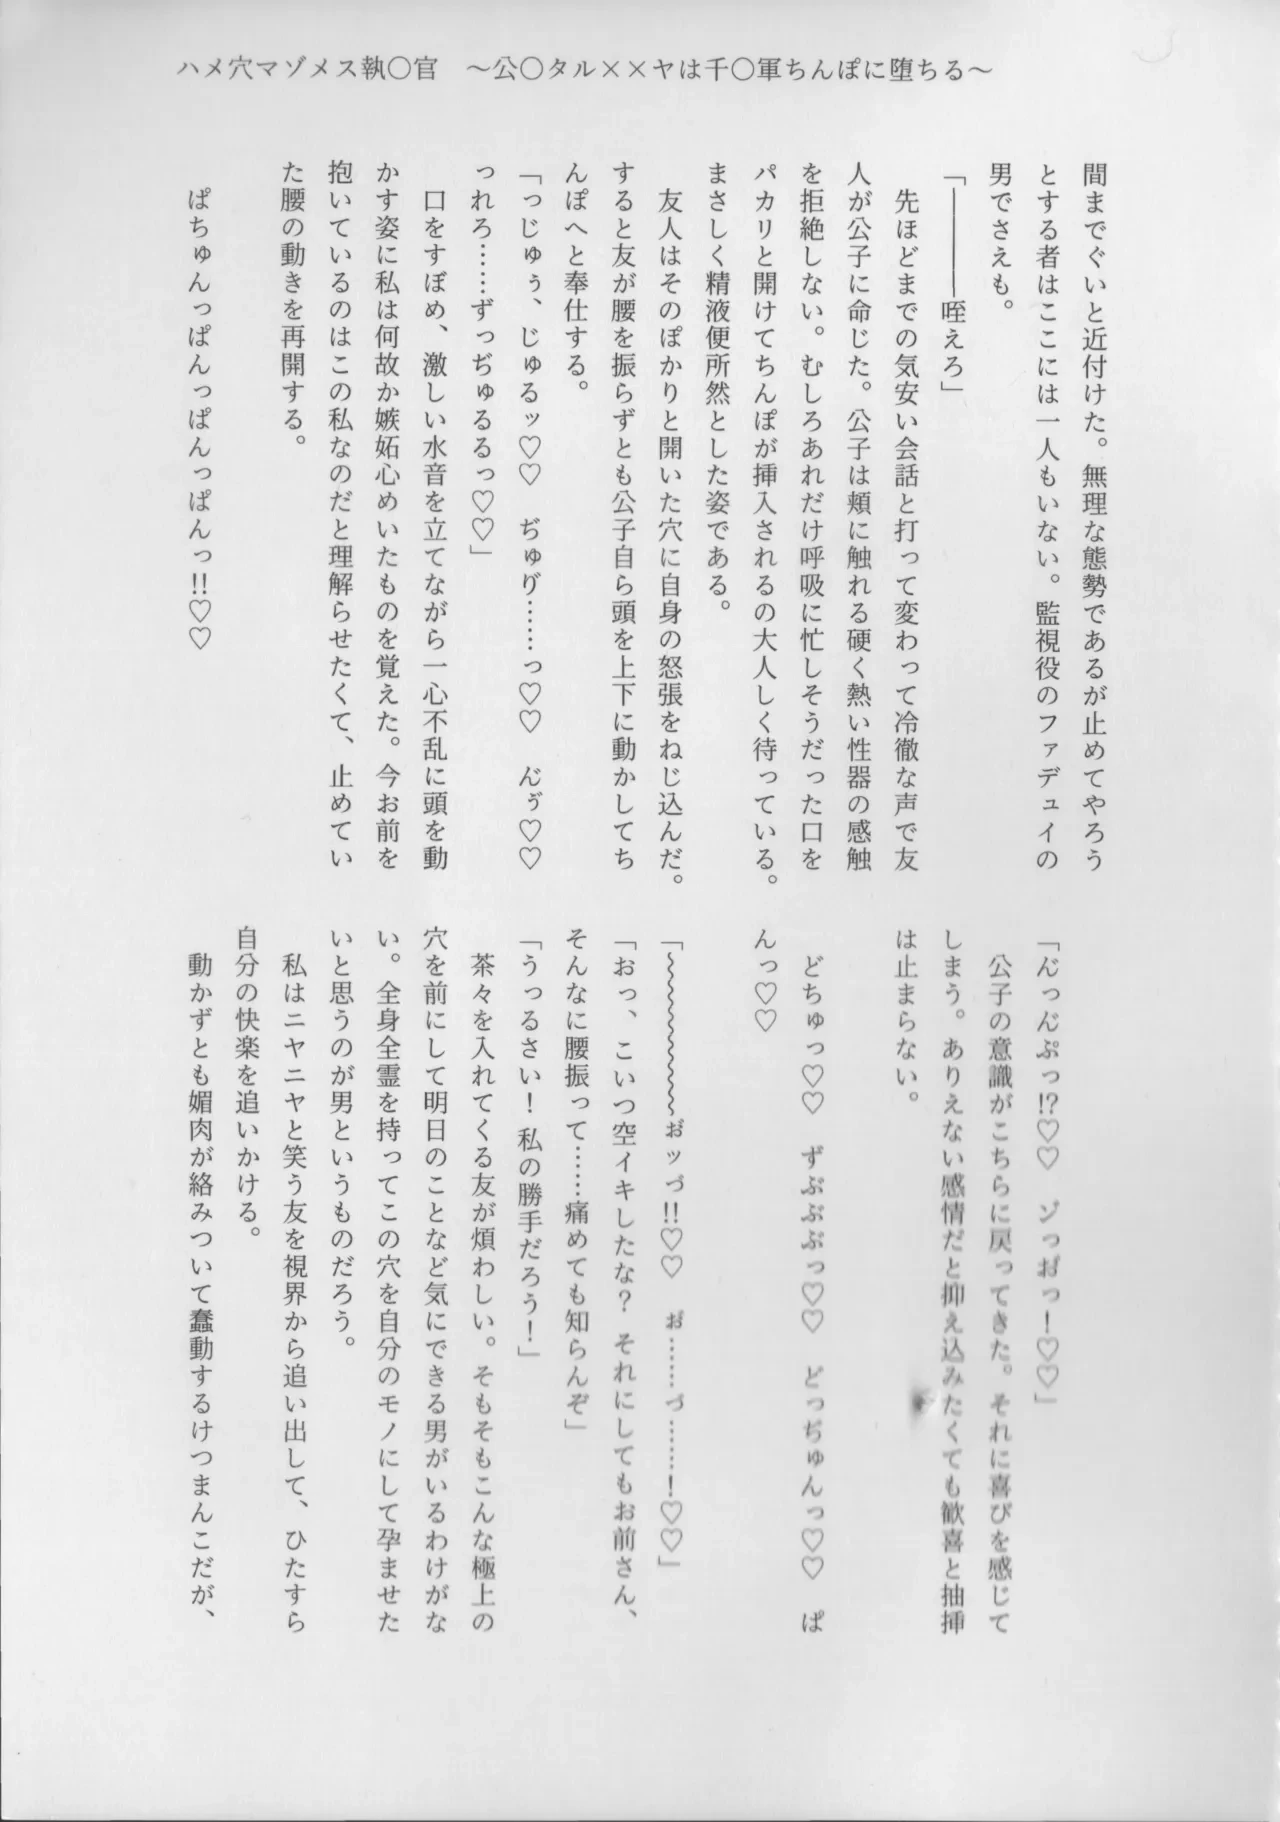 ハメ穴マゾメス執〇官　〜公〇タル××ヤは千〇軍ちんぽに堕ちる〜
間までぐいと近付けた。無理な態勢であるが止めてやろう
とする者はここには一人もいない。監視役のファデュイの
男でさえも。
「――――咥えろ」
　先ほどまでの気安い会話と打って変わって冷徹な声で友
人が公子に命じた。公子は頬に触れる硬く熱い性器の感触
を拒絶しない。むしろあれだけ呼吸に忙しそうだった口を
パカリと開けてちんぽが挿入されるの大人しく待っている。
まさしく精液便所然とした姿である。
　友人はそのぽかりと開いた穴に自身の怒張をねじ込んだ。
すると友が腰を振らずとも公子自ら頭を上下に動かしてち
んぽへと奉仕する。
「っじゅぅ、じゅるッ♡♡　ぢゅり゙……っ♡♡　ん゙ぅ゙♡♡
っれろ……ずっぢゅるるっ♡♡」
　口をすぼめ、激しい水音を立てながら一心不乱に頭を動
かす姿に私は何故か嫉妬心めいたものを覚えた。今お前を
抱いているのはこの私なのだと理解らせたくて、止めてい
た腰の動きを再開する。
　ぱちゅんっぱんっぱんっぱんっ!!♡♡
「ん゙っん゙ぷっ!?♡♡　ゾっお゙っ！♡♡」
　公子の意識がこちらに戻ってきた。それに喜びを感じて
しまう。ありえない感情だと抑え込みたくても歓喜と抽挿
は止まらない。
　どちゅっ♡♡　ずぷぷぷっ♡♡　どっぢゅんっ♡♡　ぱ
んっ♡♡
「〜〜〜〜〜〜〜ぉ゙ッづ!!♡♡　ぉ゙……づ……！♡♡」
「おっ、こいつ空イキしたな？それにしてもお前さん、
そんなに腰振って……痛めても知らんぞ」
「うっるさい！私の勝手だろう！」
　茶々を入れてくる友が煩わしい。そもそもこんな極上の
穴を前にして明日のことなど気にできる男がいるわけがな
い。全身全霊を持ってこの穴を自分のモノにして孕ませた
いと思うのが男というものだろう。
　私はニヤニヤと笑う友を視界から追い出して、ひたすら
自分の快楽を追いかける。
　動かずとも媚肉が絡みついて蠢動するけつまんこだが、